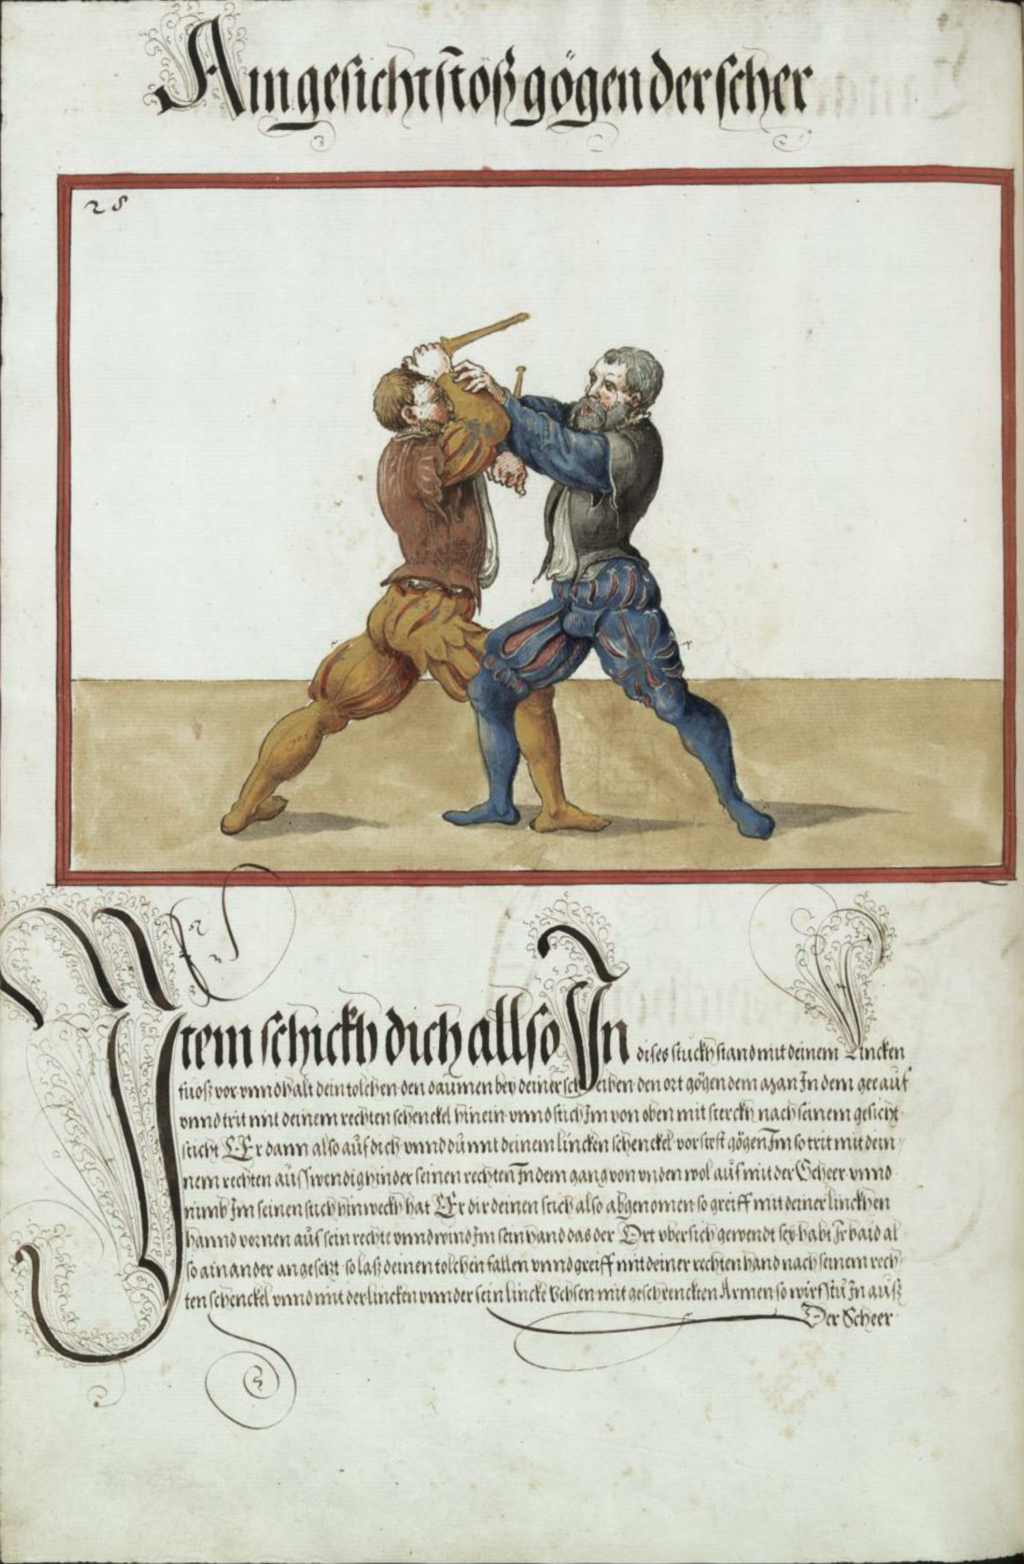 Ain gesicht stöß gögen der scher
28
Item schickh dich allso In dises stuckh stand mit deinem Lincken
fuoß vor vnnd halt dein tolchen den daumen bey deiner scheiben den ort gögen dem man In dem gee auf
vnnd trit mit deinem rechten schenckel hinein vnnd stich Im von oben mit sterckh nach seinem gesicht
sticht Er dann also auf dich vnnd du mit deinem lincken schenckel vor steest gögen Im so trit mit dein
nem rechten ausswendig hinder seinen rechten In dem gang von vnden wol auf mit der Scheer vnnd
nimb Im seinen stich hinweckh hat Er dir deinen stich also abgenomen so greiff mit deiner linckhen
hannd vornen auf sein rechte vnnd wind Im sein hand das der Ort vbersich gewendt sey habt Ir baid al
so ain ander angesetzt so laß deinen tolchen fallen vnnd greiff mit deiner rechten hand nach seinem rech
ten schenckel vnnd mit der lincken vnnder sein lincke Vchsen mit geschrenckten Armen so wirfstu In auß
Der Scheer